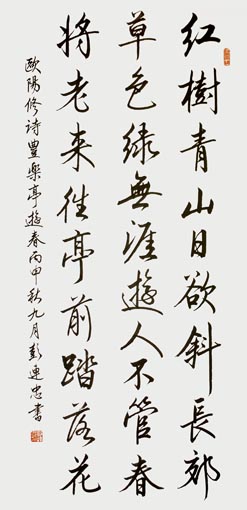 红樹青山日欲斜長郊
草色绿無涯遊人不管春
将老来往亭前踏落花
欧陽修诗豐樂亭遊春丙申秋九月彭连忠書